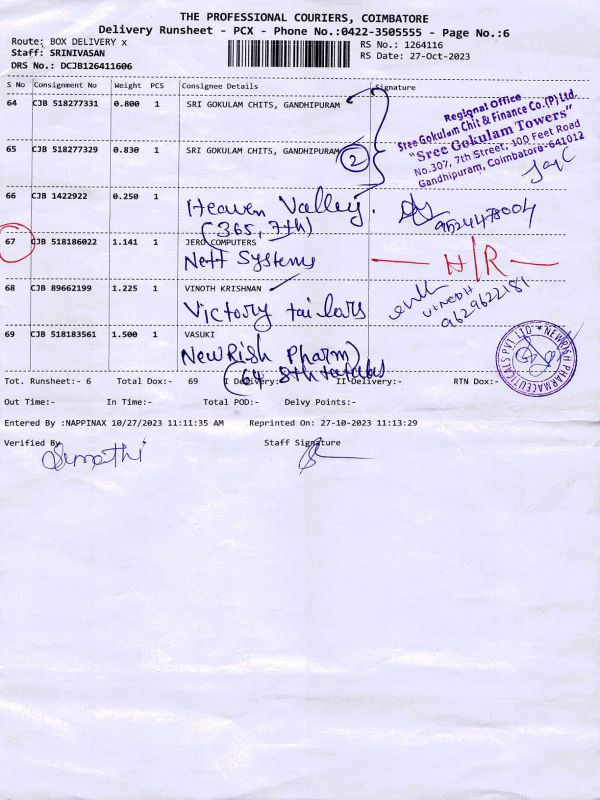 THE PROFESSIONAL COURIERS, COIMBATORE
Delivery Runsheet - PCX - Phone No.:0422-3505555 - Page No.:6
Route: BOX DELIVERY x
RS No.: 1264116
Staff: SRINIVASAN
RS Date: 27-Oct-2023
DRS No.: DCJB126411606
S No Consignment No Weight PCS Consignee Details Signature
64 CJB 518277331 0.800 1 SRI GOKULAM CHITS, GANDHIPURAM
Regional Office
Sree Gokulam Chit & Finance Co.(P) Ltd.
"Sree Gokulam Towers"
No.307, 7th Street, 100 Feet Road
Gandhipuram, Coimbatore-641012
65 CJB 518277329 0.830 1 SRI GOKULAM CHITS, GANDHIPURAM
2
66 CJB 1422922 0.250 1 Heaven Valley.
(365, 7th)
9524478004
67 CJB 518186022 1.141 1 JERO COMPUTERS
Nett Systems
N/R
68 CJB 89662199 1.225 1 VINOTH KRISHNAN
Victory tailars
VINODH
9629622181
69 CJB 518183561 1.500 1 VASUKI
NewRish Pharm)
(64 8th
NEWRISH PHARMACEUTICALS PVT LTD
Tot. Runsheet:- 6 Total Dox:- 69 I Delivery:- II Delivery:- RTN Dox:-
Out Time:- In Time:- Total POD:- Delvy Points:-
Entered By :NAPPINAX 10/27/2023 11:11:35 AM Reprinted On: 27-10-2023 11:13:29
Verified By Staff Signature